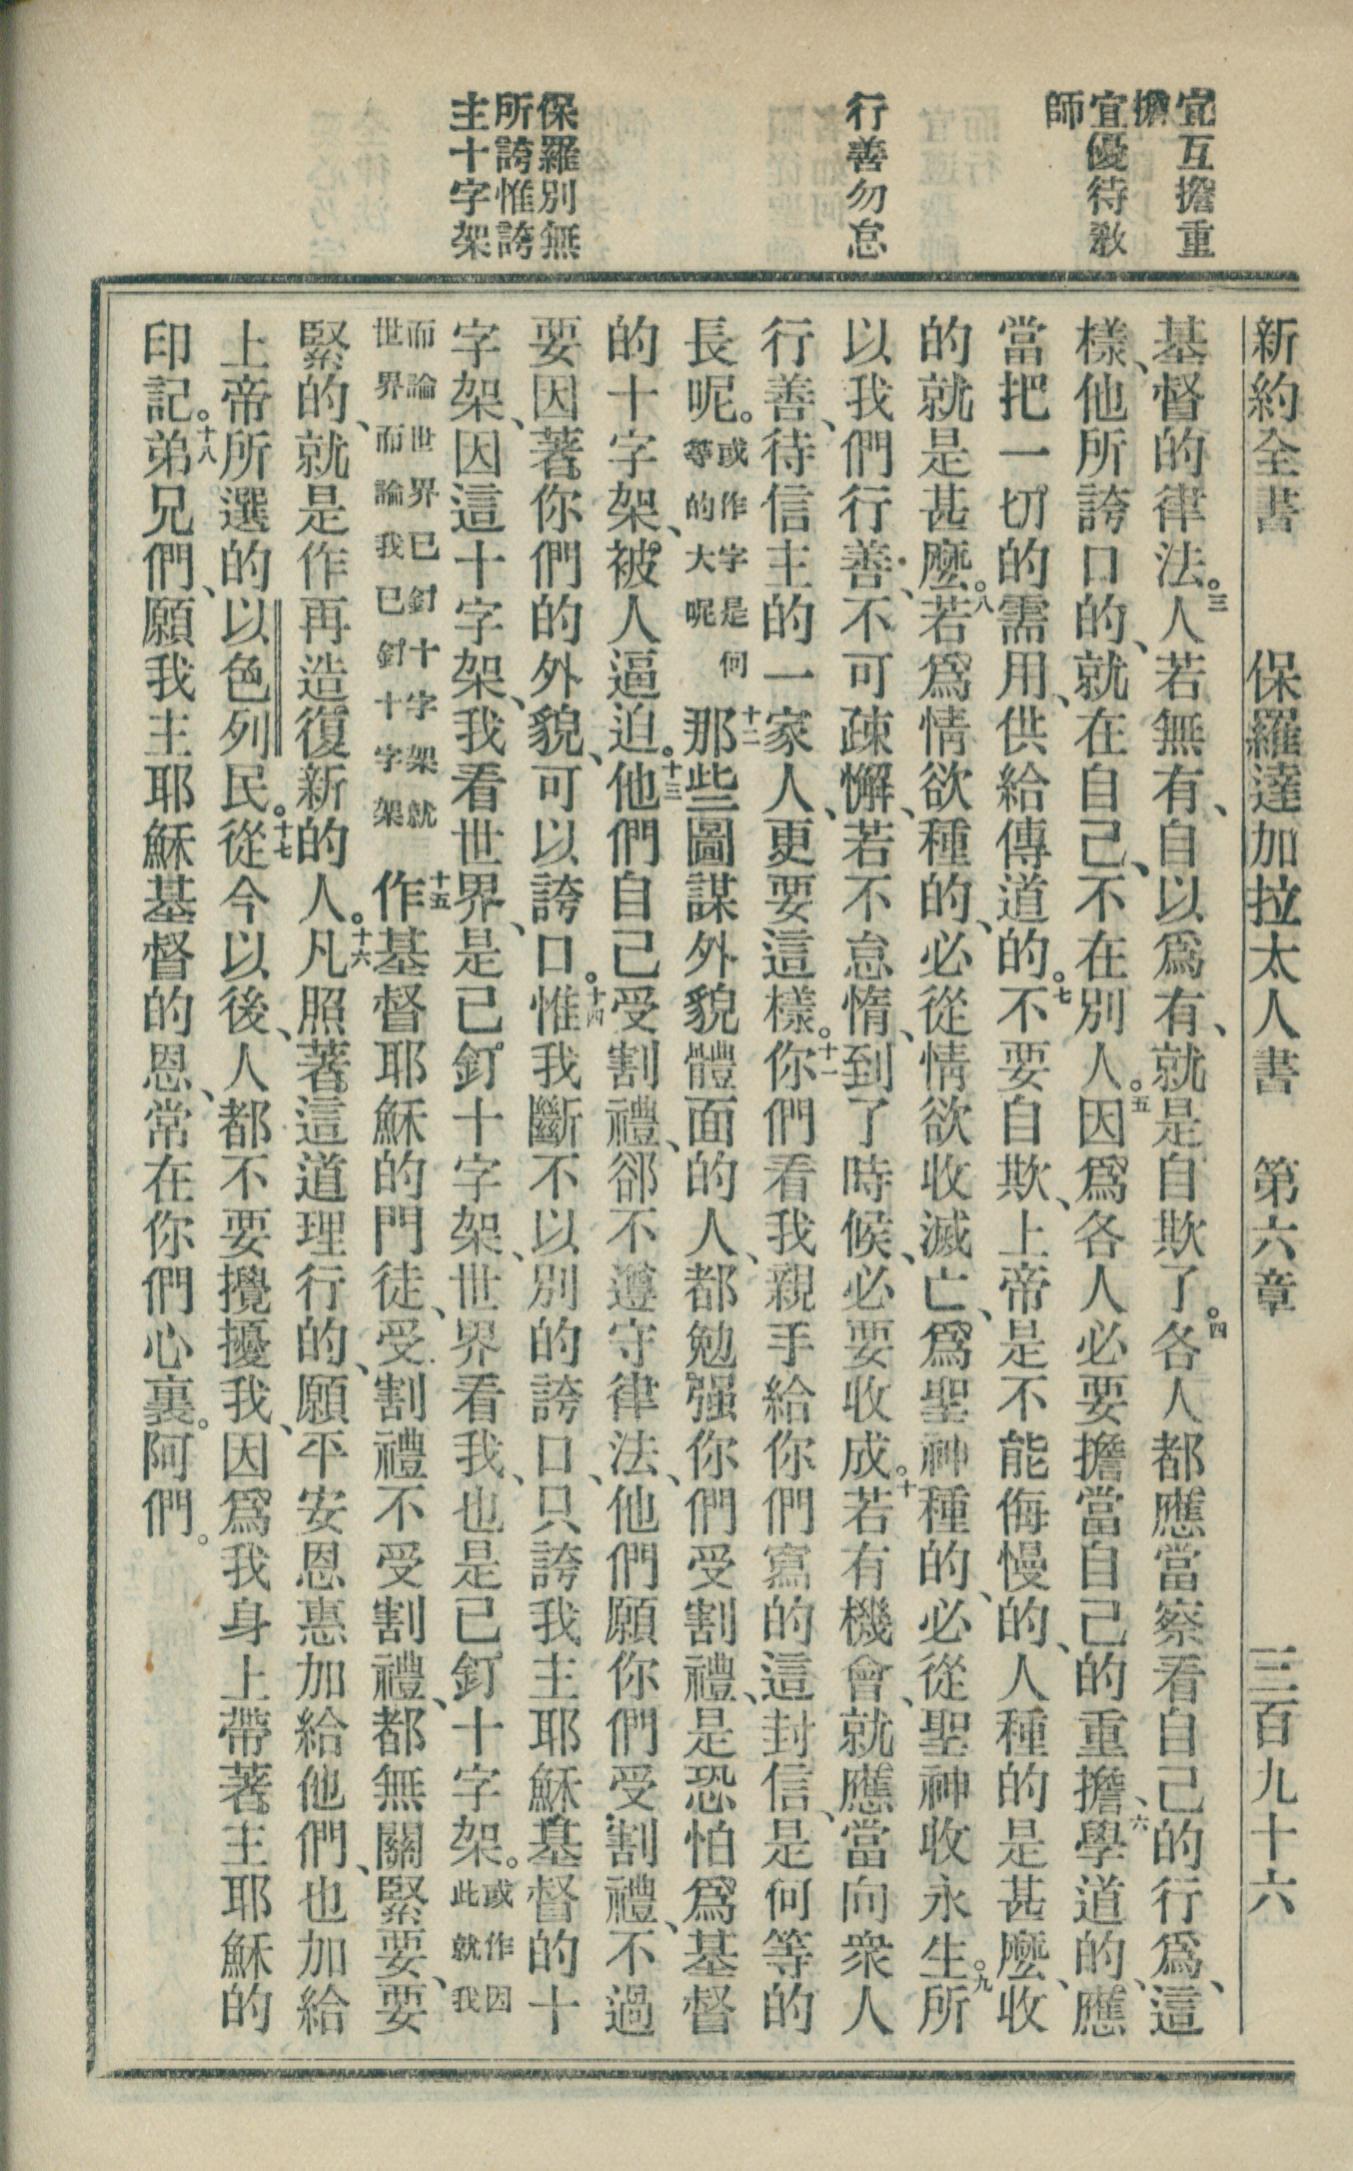 宜互擔重
擔
宜優待教
師
行善勿怠
保羅別無
所誇惟誇
主十字架
新約全書 保羅達加拉太人書 第六章 三百九十六
基督的律法。三人若無有、自以爲有、就是自欺了。四各人都應當察看自己的行爲、這
樣、他所誇口的、就在自己、不在別人。五因爲各人必要擔當自己的重擔、六學道的、應
當把一切的需用、供給傳道的。七不要自欺、上帝是不能侮慢的、人種的是甚麽、收
的就是甚麽。八若爲情欲種的、必從情欲收滅亡、爲聖神種的、必從聖神收永生。九所
以我們行善、不可疎懈、若不怠惰、到了時候、必要收成。十若有機會、就應當向衆人
行善、待信主的一家人、更要這樣。十一你們看我親手給你們寫的這封信、是何等的
長呢。或作字是何等的大呢十二那些圖謀外貌體面的人、都勉强你們受割禮、是恐怕爲基督
的十字架、被人逼迫。十三他們自己受割禮、郤不遵守律法、他們願你們受割禮、不過
要因著你們的外貌、可以誇口。十四惟我斷不以別的誇口、只誇我主耶穌基督的十
字架、因這十字架、我看世界、是已釘十字架、世界看我、也是已釘十字架。或作因此就我
而論世界已釘十字架就世界而論我已釘十字架十五作基督耶穌的門徒、受割禮不受割禮、都無關緊要、要
緊的、就是作再造復新的人。十六凡照著這道理行的、願平安恩惠加給他們、也加給
上帝所選的以色列民。十七從今以後、人都不要攪擾我、因爲我身上帶著主耶穌的
印記。十八弟兄們、願我主耶穌基督的恩、常在你們心裏。阿們。